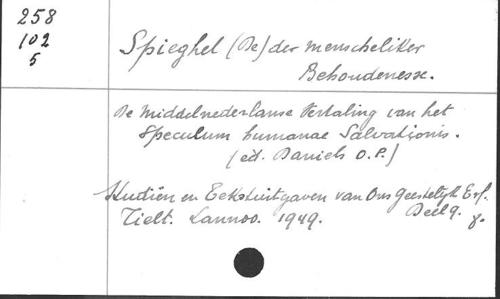 258
102
5
Spieghel (De) der menscheliker
Behoudenesse.
De Middelnederlanse Vertaling van het
Speculum humanae Salvationis.
(ed. Daniels O.P.)
Studiën en Tekstuitgaven van Ons Geestelijk Erf.
Deel 9.
Tielt. Lannoo. 1949. 8°.